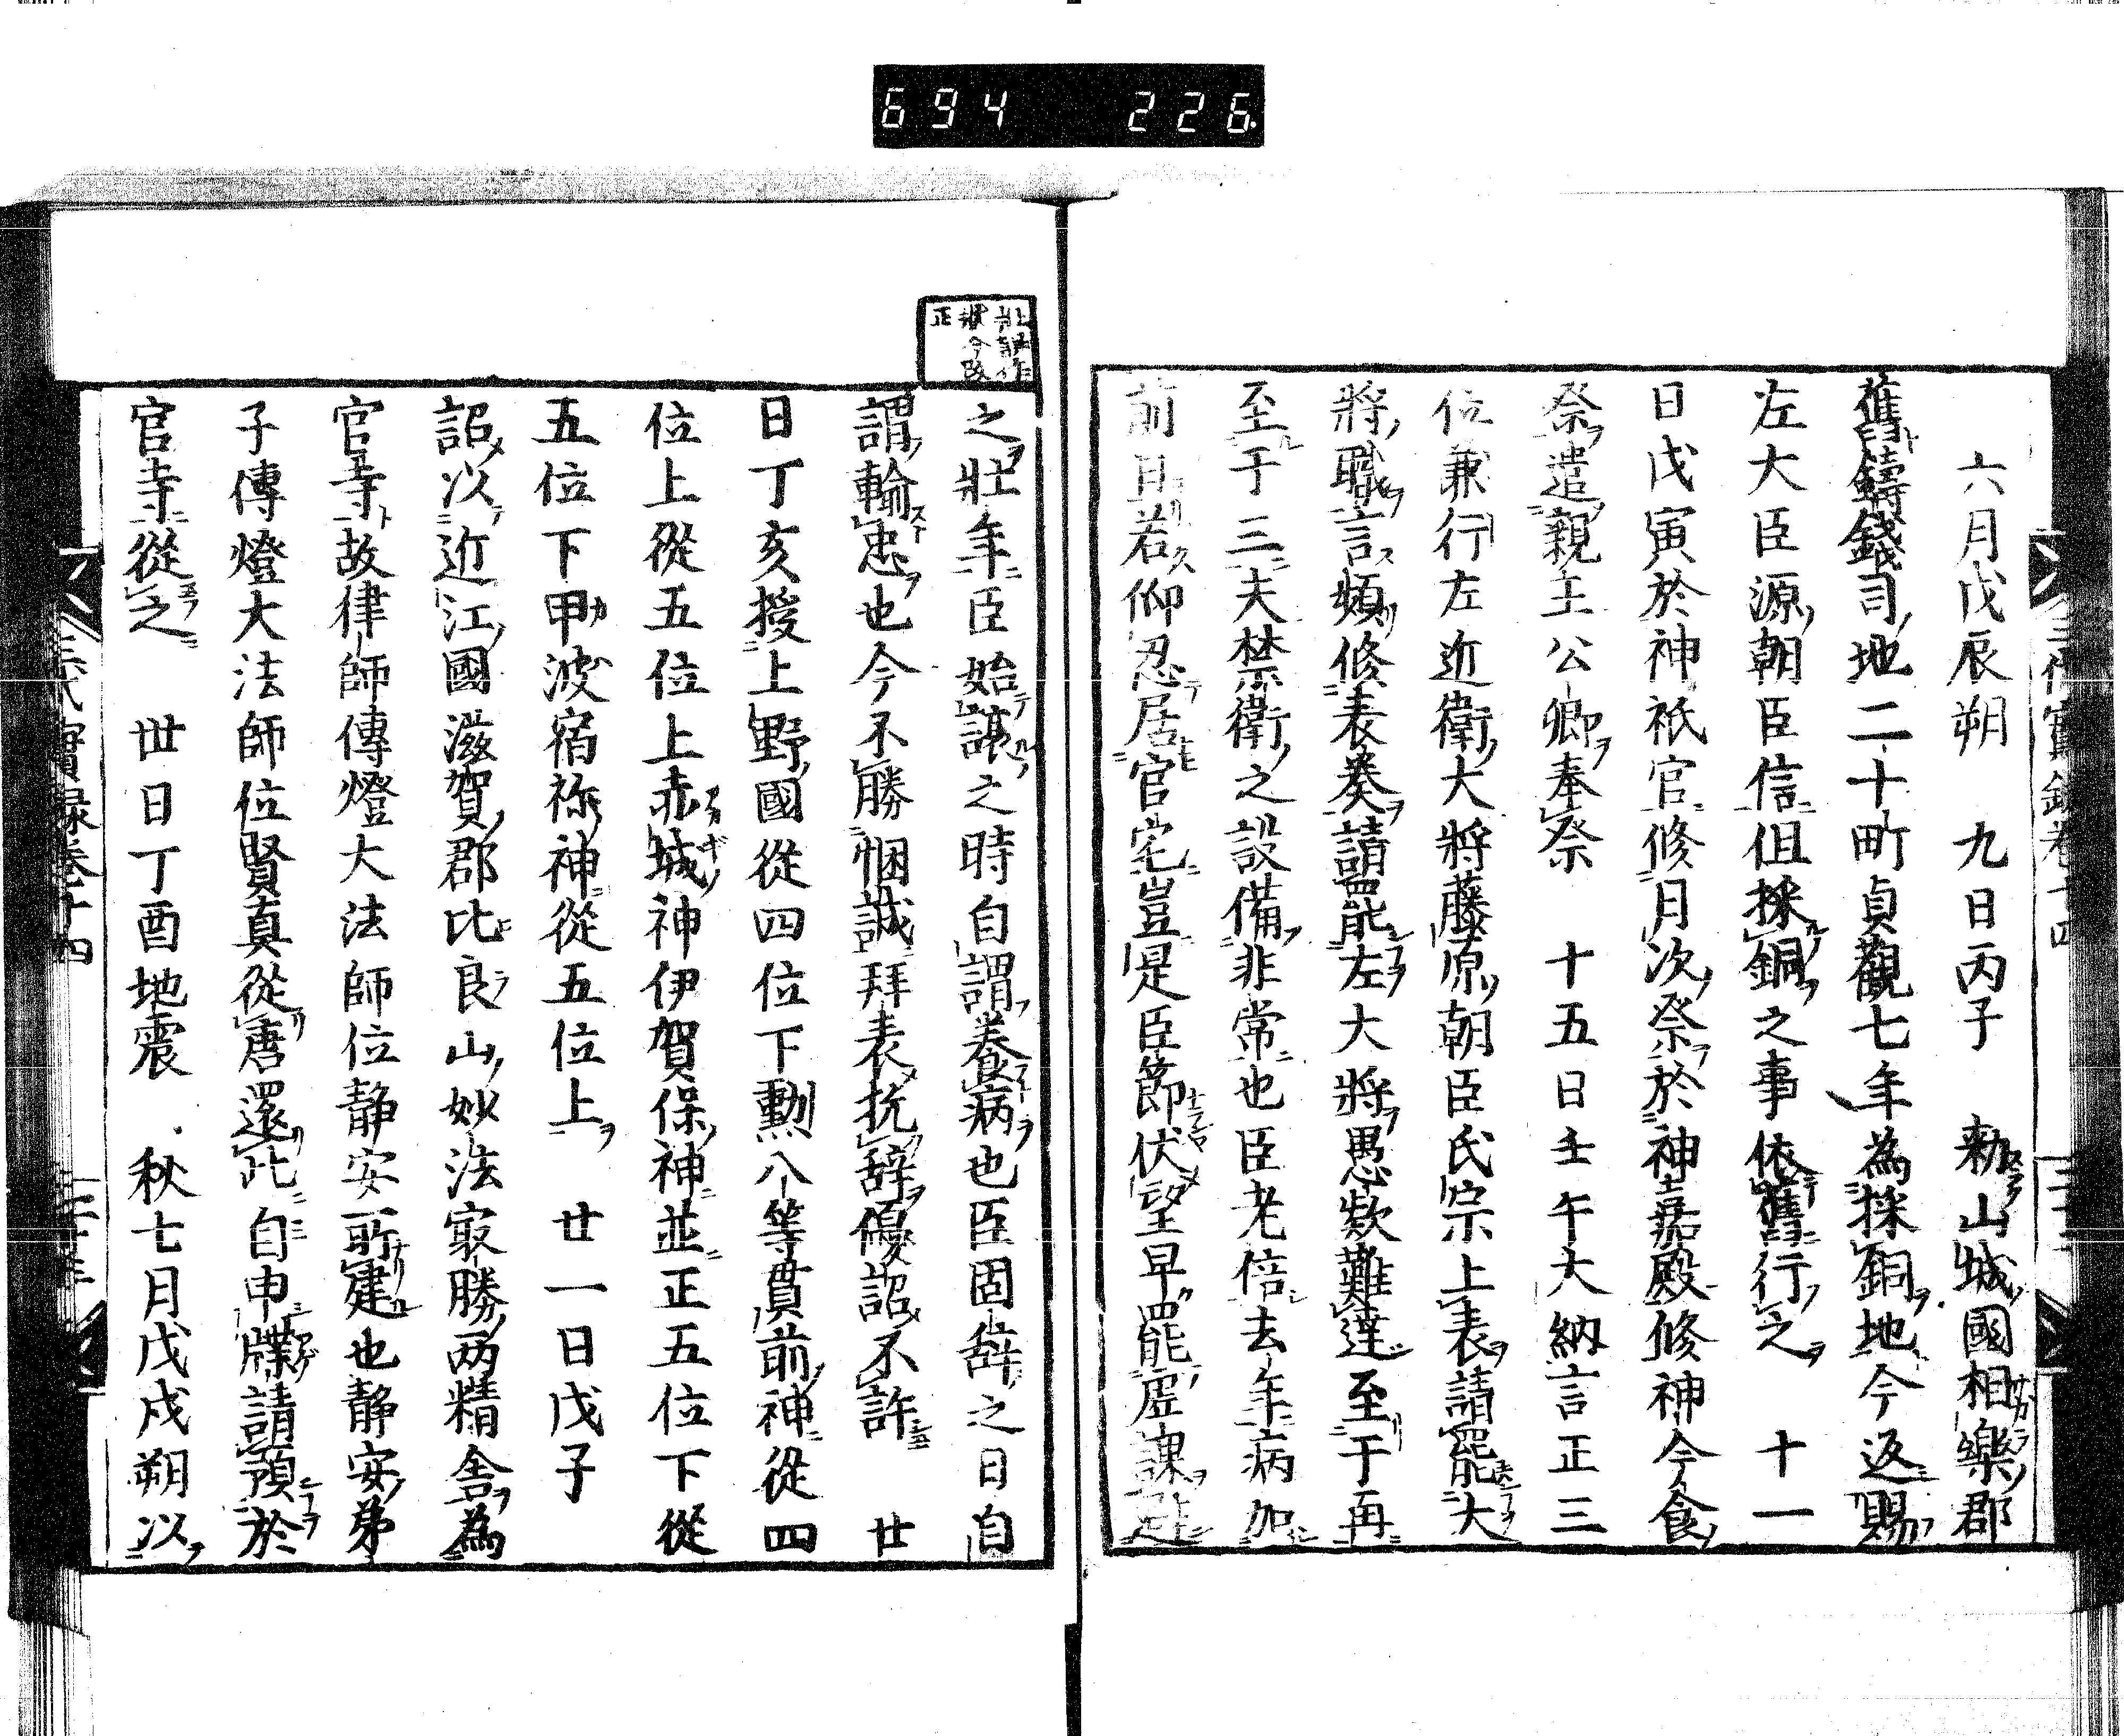 694 226
六月戊辰朔 九日丙子 勅山城國相樂郡
舊鑄錢司地二十町貞觀七年為採銅地今返賜
左大臣源朝臣信但採銅之事依舊行之 十一
日戊寅於神祇官修月次祭於神嘉殿修神今食
祭遣親王公卿奉祭 十五日壬午大納言正三
位兼行左近衛大將藤原朝臣氏宗上表請罷大
將職言頻修表奏請罷左大將愚欵難達至于再
至于三夫禁衛之設備非常也臣老倍去年病加
前日若仰忍居官宅豈是臣節伏望早罷虛課避
之壯年臣始讓之時自謂養病也臣固辞之日自
謂輸忠也今不勝悃誠拜表抗辞優詔不許 廿
日丁亥授上野國從四位下勳八等貫前神從四
位上從五位上赤城神伊賀保神並正五位下從
五位下甲波宿祢神從五位上 廿一日戊子
詔以近江國滋賀郡比良山妙法寂勝两精舎為
官寺故律師傳燈大法師位静安所建也静安弟
子傳燈大法師位賢真從唐還此自申牒請預於
官寺從之 丗日丁酉地震 秋七月戊戌朔以
壯訛作
今改
正
三代實録卷十四